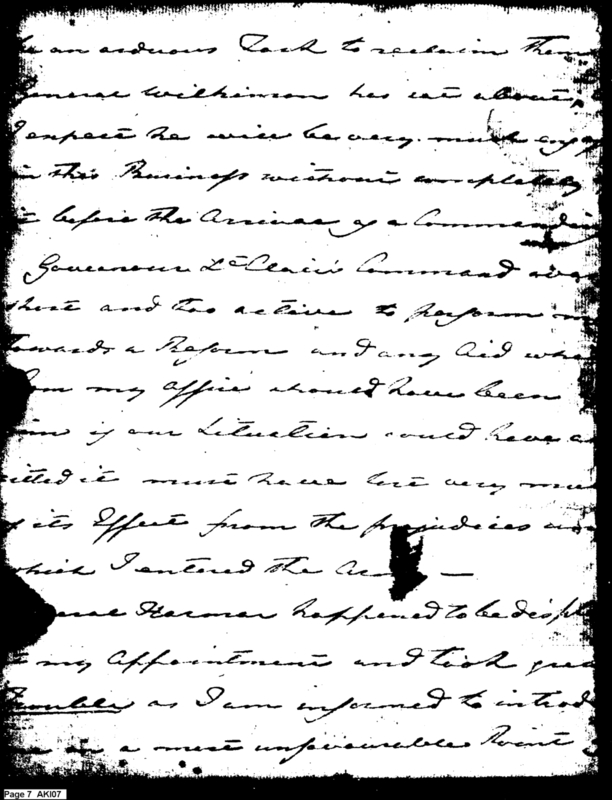 be an arduous Task to reclaim them
General Wilkinson has set about,
I expect he will be very much
in this Business without completely
it before the Arrival of a Commanding
Governour St Clair's Command was
short and too active to perform
towards a Reform and any Aid
from my Office should have been
if our Situation could have
it must have lost very
of its Effect from the prejudices
which I entered the
Harmar happened to be
at my Appointment and took
Trouble as I am informed to
me in a most unfavourable Point
Page 7 AKI07